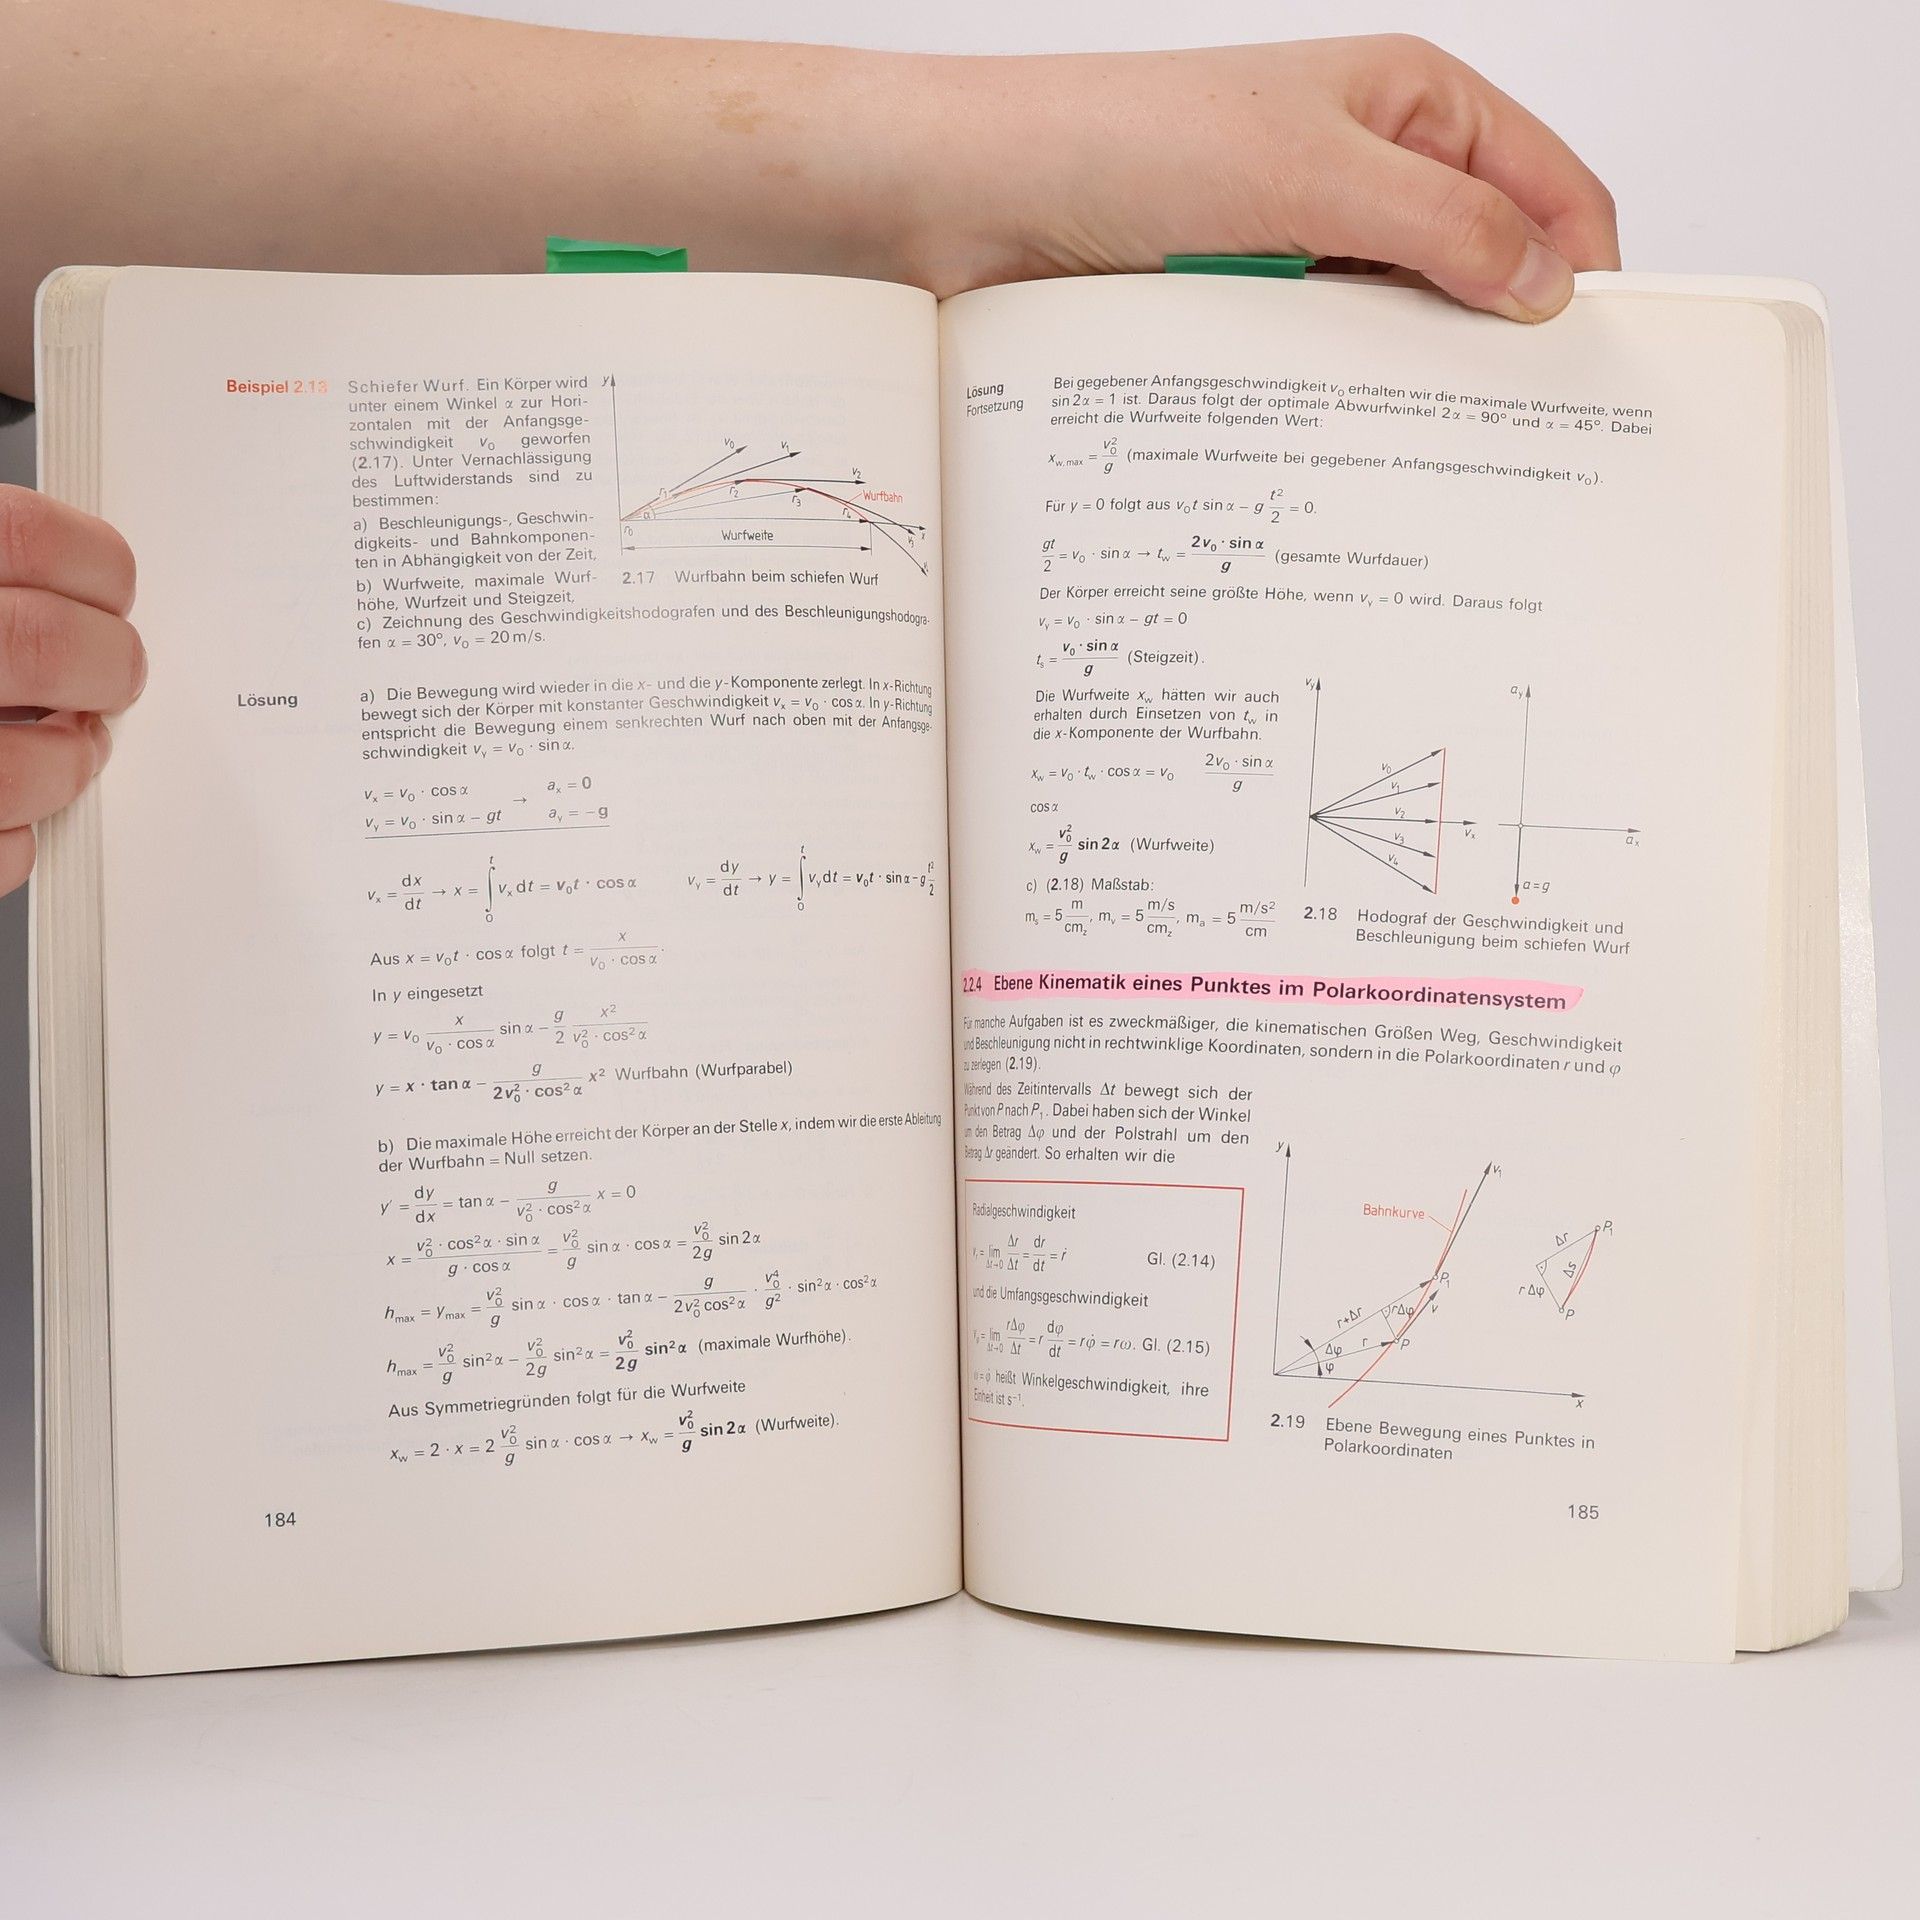 Beispiel 2.13
Schiefer Wurf. Ein Körper wird
unter einem Winkel α zur Hori-
zontalen mit der Anfangsge-
schwindigkeit v₀ geworfen
(2.17). Unter Vernachlässigung
des Luftwiderstands sind zu
bestimmen:
a) Beschleunigungs-, Geschwin-
digkeits- und Bahnkomponen-
ten in Abhängigkeit von der Zeit,
b) Wurfweite, maximale Wurf-
höhe, Wurfzeit und Steigzeit,
c) Zeichnung des Geschwindigkeitshodografen und des Beschleunigungshodogra-
fen α = 30°, v₀ = 20 m/s.
y
v₀ v₁ v₂
r₁ r₂ r₃ r₄ Wurfbahn
r₀ α x v₃
Wurfweite
2.17 Wurfbahn beim schiefen Wurf
Lösung
a) Die Bewegung wird wieder in die x- und die y-Komponente zerlegt. In x-Richtung
bewegt sich der Körper mit konstanter Geschwindigkeit vₓ = v₀ · cos α. In y-Richtung
entspricht die Bewegung einem senkrechten Wurf nach oben mit der Anfangsge-
schwindigkeit v_y = v₀ · sin α.
vₓ = v₀ · cos α → aₓ = 0
v_y = v₀ · sin α − gt a_y = −g
vₓ = dx/dt → x = ∫₀ᵗ vₓ dt = v₀t · cos α v_y = dy/dt → y = ∫₀ᵗ v_y dt = v₀t · sin α − g t²/2
Aus x = v₀t · cos α folgt t = x/(v₀ · cos α).
In y eingesetzt
y = v₀ x/(v₀ · cos α) sin α − g/2 x²/(v₀² · cos² α)
y = x · tan α − g/(2v₀² · cos² α) x² Wurfbahn (Wurfparabel)
b) Die maximale Höhe erreicht der Körper an der Stelle x, indem wir die erste Ableitung
der Wurfbahn = Null setzen.
y′ = dy/dx = tan α − g/(v₀² · cos² α) x = 0
x = (v₀² · cos² α · sin α)/(g · cos α) = v₀²/g sin α · cos α = v₀²/2g sin 2α
h_max = y_max = v₀²/g sin α · cos α · tan α − g/(2v₀² cos² α) · v₀⁴/g² · sin² α · cos² α
h_max = v₀²/g sin² α − v₀²/2g sin² α = v₀²/2g sin² α (maximale Wurfhöhe).
Aus Symmetriegründen folgt für die Wurfweite
x_w = 2 · x = 2 v₀²/g sin α · cos α → x_w = v₀²/g sin 2α (Wurfweite).
184
Lösung
Fortsetzung
Bei gegebener Anfangsgeschwindigkeit v₀ erhalten wir die maximale Wurfweite, wenn
sin 2α = 1 ist. Daraus folgt der optimale Abwurfwinkel 2α = 90° und α = 45°. Dabei
erreicht die Wurfweite folgenden Wert:
x_w, max = v₀²/g (maximale Wurfweite bei gegebener Anfangsgeschwindigkeit v₀).
Für y = 0 folgt aus v₀t sin α − g t²/2 = 0.
gt/2 = v₀ · sin α → t_w = 2v₀ · sin α/g (gesamte Wurfdauer)
Der Körper erreicht seine größte Höhe, wenn v_y = 0 wird. Daraus folgt
v_y = v₀ · sin α − gt = 0
t_s = v₀ · sin α/g (Steigzeit).
Die Wurfweite x_w hätten wir auch
erhalten durch Einsetzen von t_w in
die x-Komponente der Wurfbahn.
x_w = v₀ · t_w · cos α = v₀ 2v₀ · sin α/g
cos α
x_w = v₀²/g sin 2α (Wurfweite)
c) (2.18) Maßstab:
m_s = 5 m/cm_z, m_v = 5 m/s/cm_z, m_a = 5 m/s²/cm
v_y a_y
v₀
v₁
v₂ vₓ
v₃ aₓ
v₄
a = g
2.18 Hodograf der Geschwindigkeit und
Beschleunigung beim schiefen Wurf
2.2.4 Ebene Kinematik eines Punktes im Polarkoordinatensystem
Für manche Aufgaben ist es zweckmäßiger, die kinematischen Größen Weg, Geschwindigkeit
und Beschleunigung nicht in rechtwinklige Koordinaten, sondern in die Polarkoordinaten r und φ
zu zerlegen (2.19).
Während des Zeitintervalls Δt bewegt sich der
Punkt von P nach P₁. Dabei haben sich der Winkel
um den Betrag Δφ und der Polstrahl um den
Betrag Δr geändert. So erhalten wir die
Radialgeschwindigkeit
v_r = lim Δt→0 Δr/Δt = dr/dt = ṙ Gl. (2.14)
und die Umfangsgeschwindigkeit
v_φ = lim Δt→0 rΔφ/Δt = r dφ/dt = rφ̇ = rω. Gl. (2.15)
ω = φ̇ heißt Winkelgeschwindigkeit, ihre
Einheit ist s⁻¹.
y
v₁
Bahnkurve
P₁
r+Δr rΔφ v
r P
Δφ
φ
x
P₁
Δr
Δs
rΔφ
P
2.19 Ebene Bewegung eines Punktes in
Polarkoordinaten
185